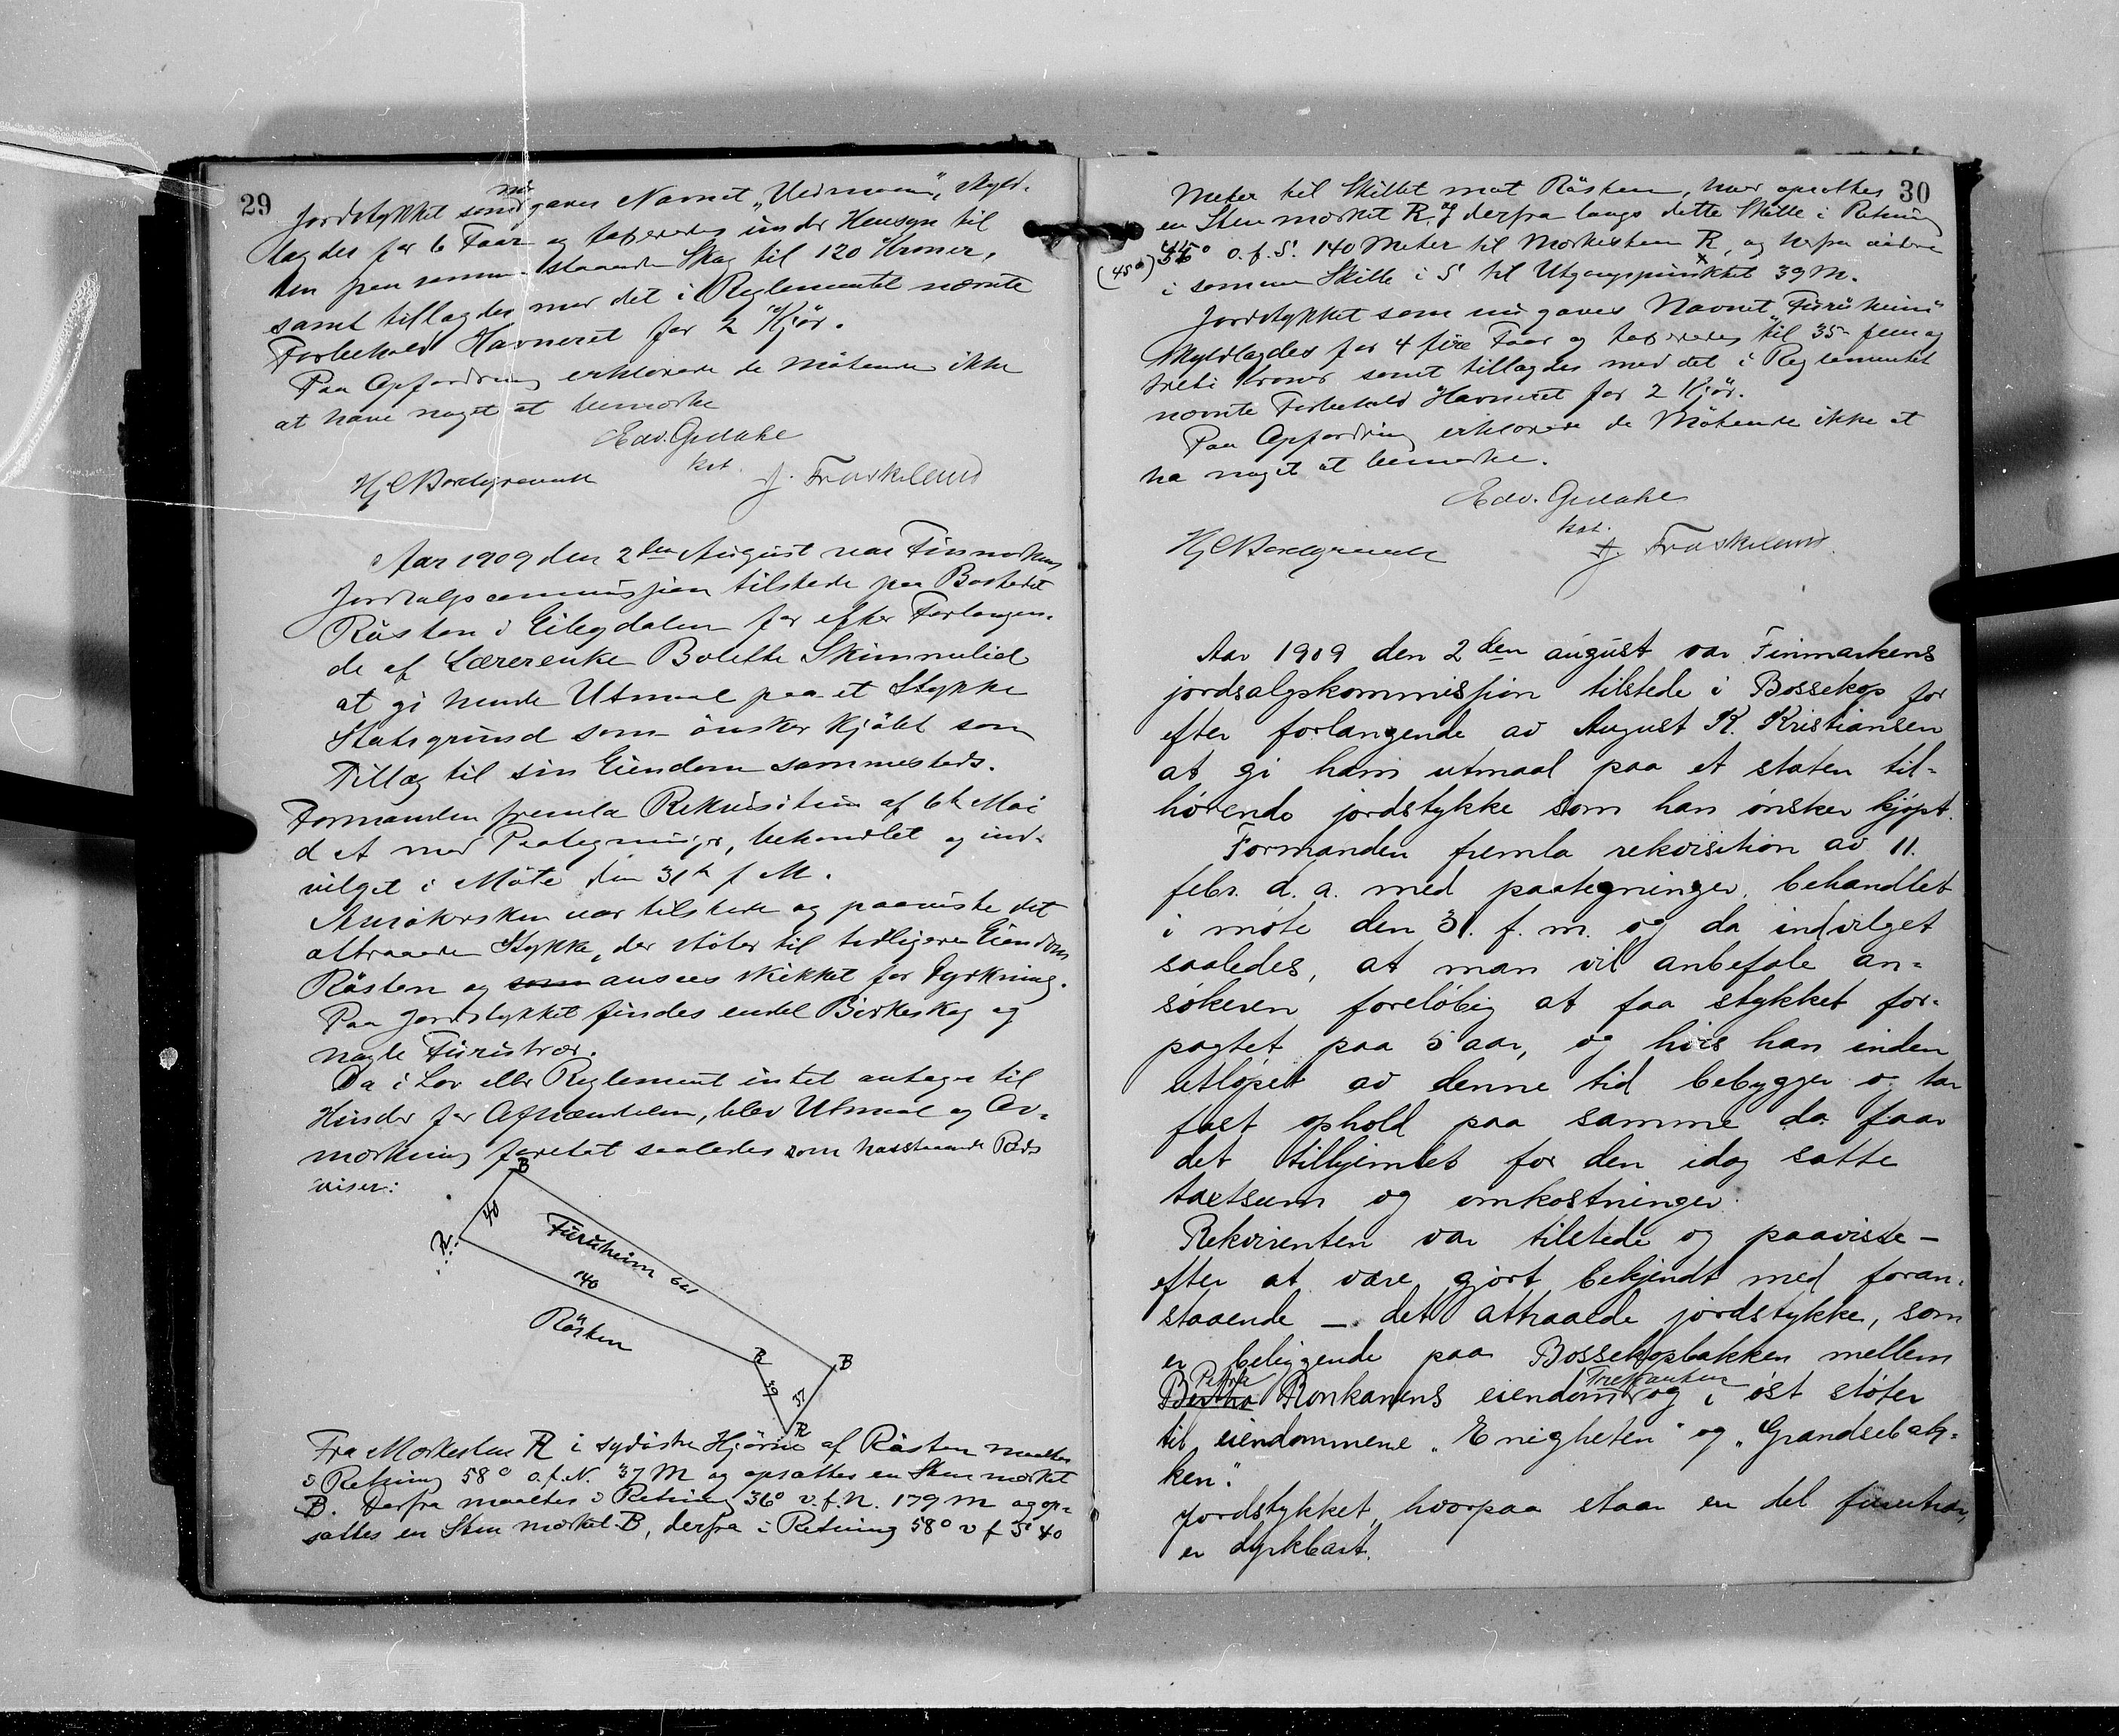 29
nu
Jordstykket som gaves Navnet skyld-
lagdes for 6 Faar og taxeredes under Hensyn til
den paa samme staaende Skog til 120 Kroner,
samt tillagdes med det i Reglementet nævnte
Forbehold Havneret for 2 Kjör.
Paa Opfordring erklærede de mötende ikke
at have noget at bemærke
Edv. Gedahl
kst.
Aar 1909 den 2den August var Finmarkens
Jordsalgscommission tilstede paa Bostedet
Rästen i Eibydalen for efter Forlangen-
de af Lærerenke Bolette Skimmelid
at gi hende Utmaal paa et Stykke
Statsgrund som önskes kjöbt som
Tillæg til sin Eiendom sammesteds.
Formanden fremla Rekvisition af 6te Mai
d A med Paategninger, behandlet og ind-
vilget i Möte den 31te f M.
Ansökersken var tilstede og paaviste det
attraaede Stykke, der stöter til tidligere Eiendom
Rästen og som ansees skikket for Dyrkning.
Paa Jordstykket findes endel Birkeskog og
nogle Furutrær.
Da i Lov eller Reglement intet antages til
Hinder for Afhændelsen, blev Utmaal og Av-
mærkning foretat saaledes som hosstaaende Rids
viser:
B
40
R
Furuheim
179
140
Rästen
R
B
39
37
R
Fra Merkesten R i sydöstre Hjörne af Rästen maaltes
i Retning 58° o.f.N. 37 M og opsattes en Sten mærket
B. Herfra maaltes i Retning 36° v.f.N. 179 m og op-
sattes en Sten mærket B, derfra i Retning 58° v f S 40
30
Meter til Skillet mot Rästen, hvor opsattes
en Sten mærket R og derfra langs dette Skille i Retning
(45°) o.f.S. 140 Meter til Merkesten R, og herfra videre
i samme Skille i S til Utgangspunktet 39 M.
Jordstykket som nu gaves Navnet "Furuheim"
skyldlagdes for 4 fire Faar og taxeredes til 35 - fem og
treti Kroner samt tillagdes med det i Reglementet
nævnte Forbehold Havneret for 2 Kjör.
Paa Opfordring erklærede de Mötende ikke at
ha noget at bemerke.
Edv. Gedahl
kst.
Aar 1909 den 2den august var Finmarkens
jordsalgskommission tilstede i Bossekop for
efter forlangende av August K. Kristiansen
at gi ham utmaal paa et staten til-
hørende jordstykke som han ønsker kjøpt.
Formanden fremla rekvisition av 11.
febr. d.a. med paategninger, behandlet
i møte den 31. f. m. og da indvilget
saaledes, at man vil anbefale an-
søkeren foreløbig at faa stykket for-
pagtet paa 5 aar, og hvis han inden
utløpet av denne tid bebygger og tar
fast ophold paa samme da faar
det tilhjemlet for den idag satte
taxtsum og omkostninger.
Rekvirenten var tilstede og paaviste -
efter at være gjort bekjendt med foran-
staaende - det attraaede jordstykke, som
er beliggende paa Bossekopbakken mellem
Petra Trekanten
Bertha Ronkanens eiendom og i øst støter
til eiendommene "Enigheten" og "Grandsebak-
ken".
Jordstykket, hvorpaa staar en del furutrær,
er dyrkbart.